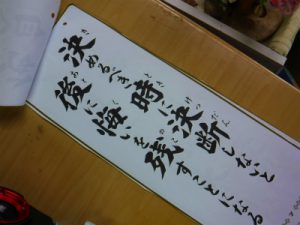 決めるべき時に決断しないと
後に悔いを残すことになる